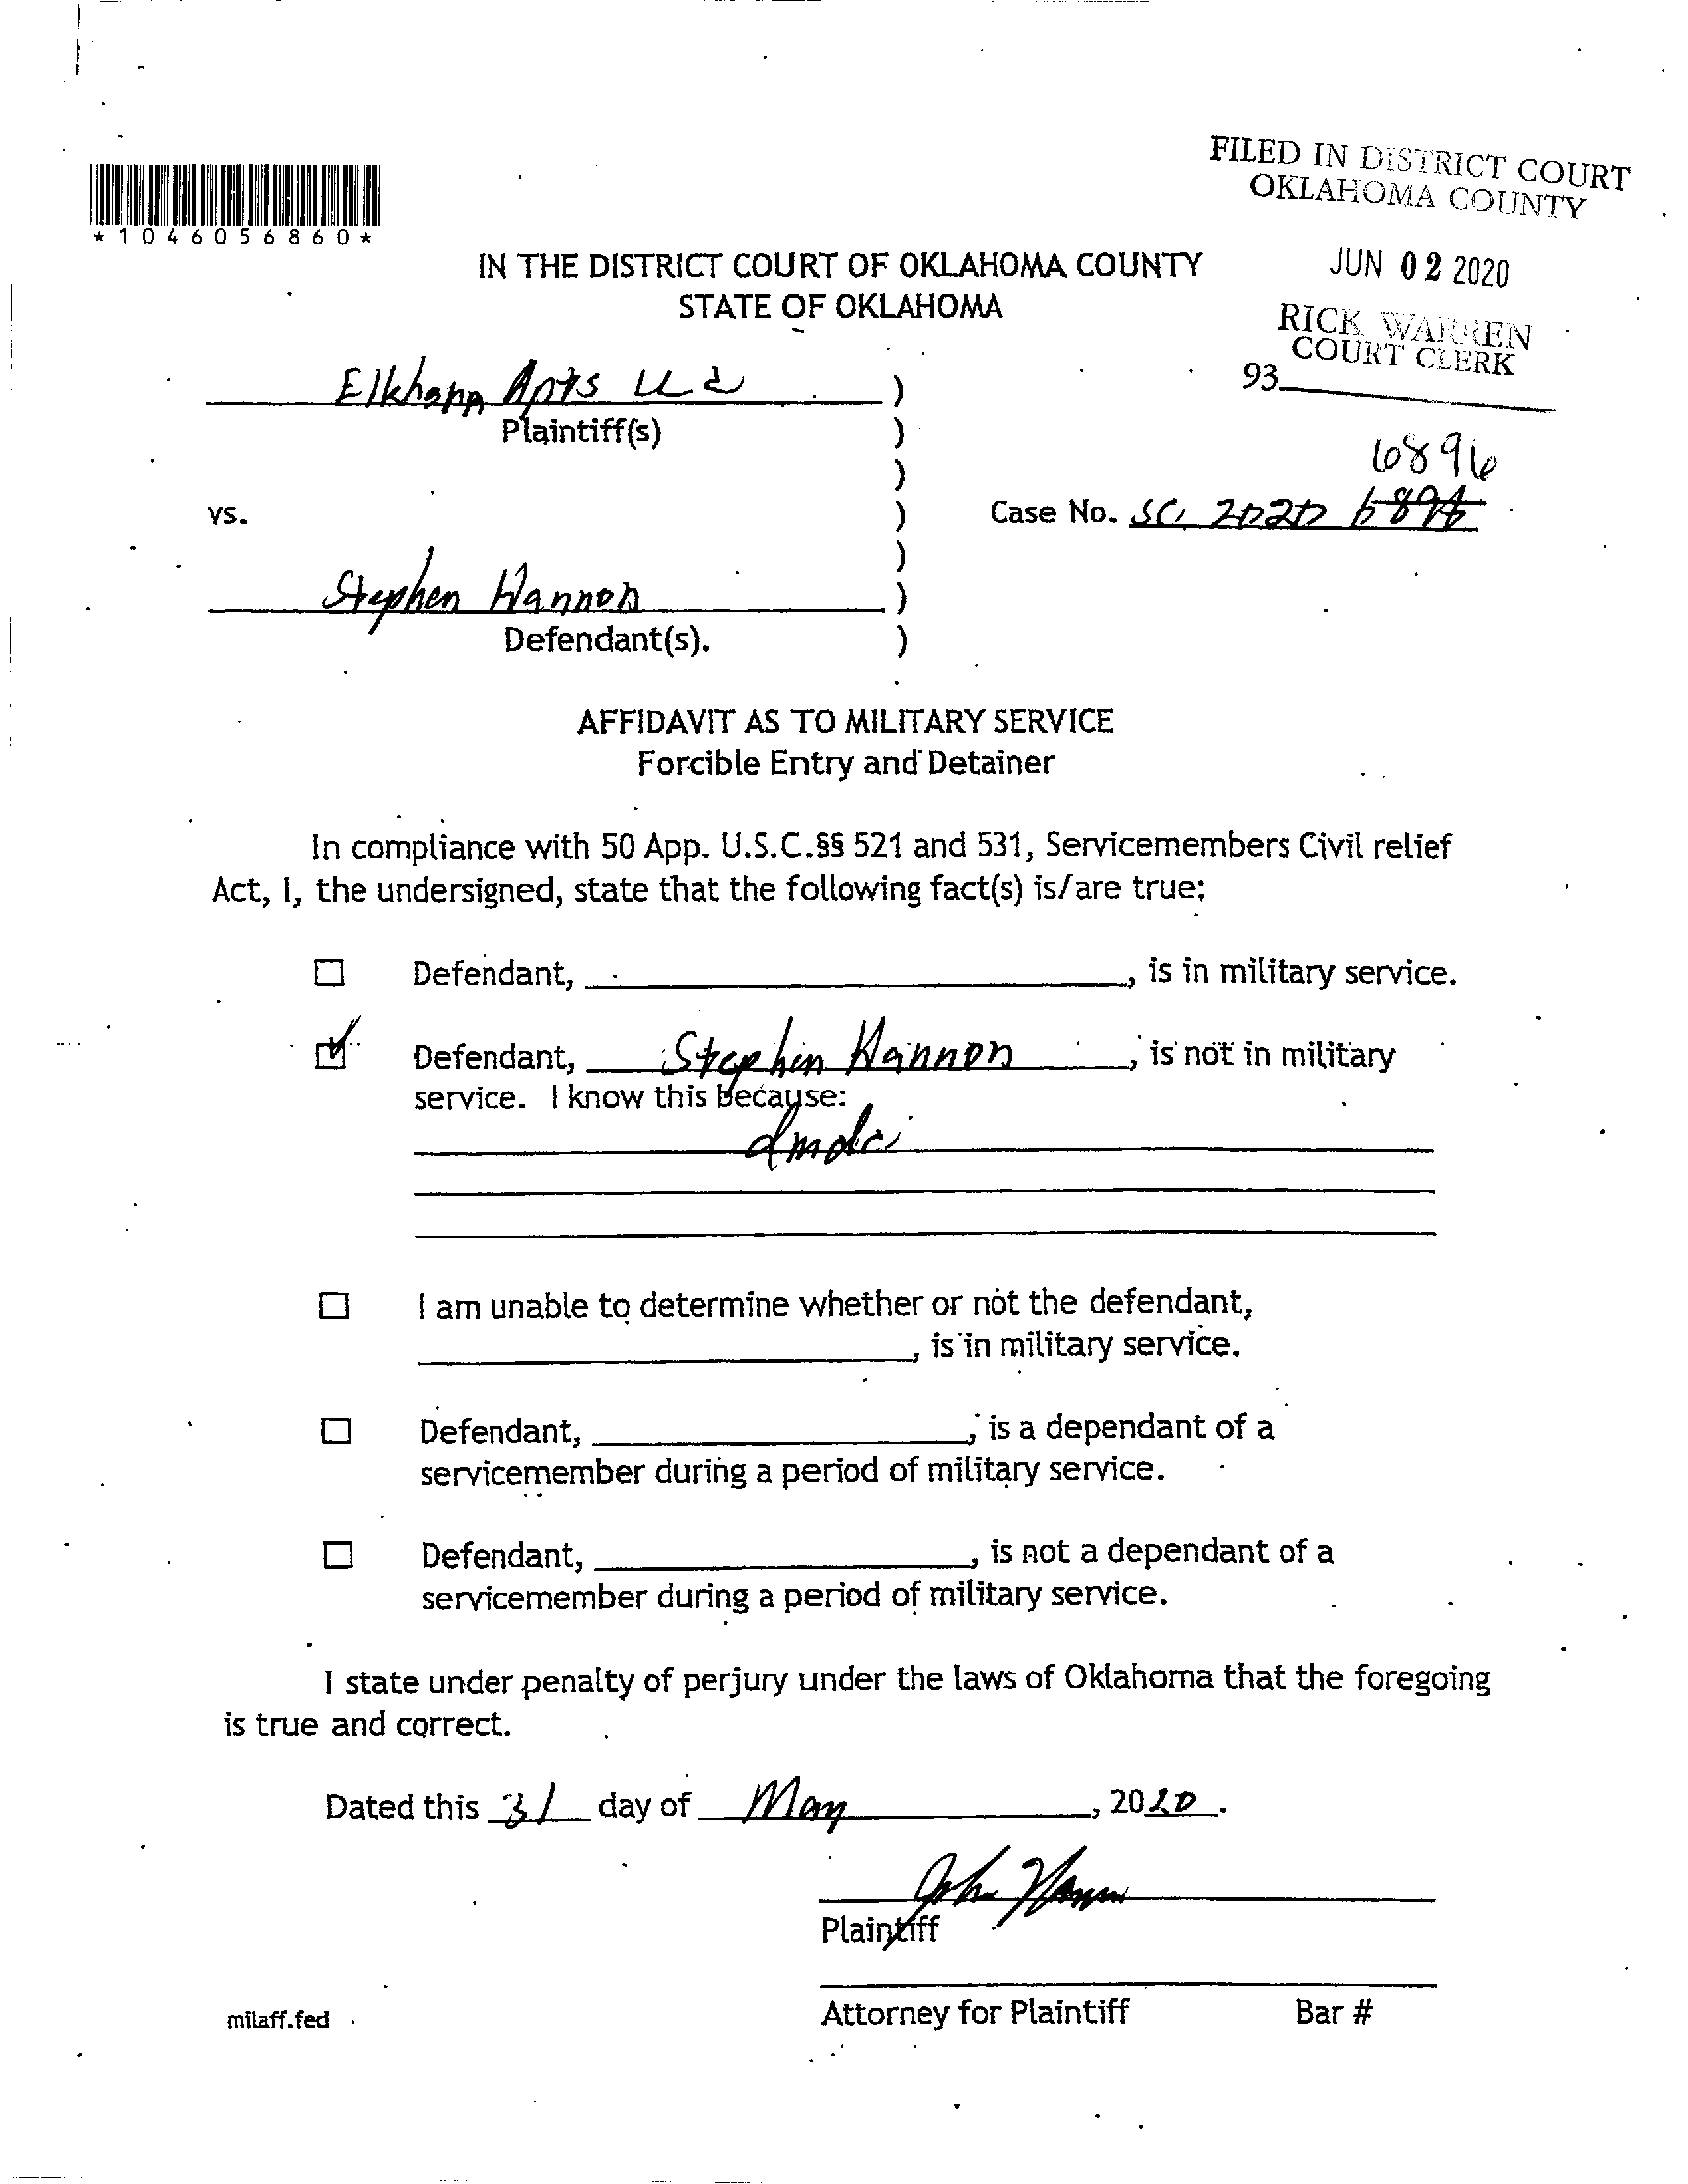 FILED IN DISTRICT COURT
OKLAHOMA COUNTY
*1046056860*
JUN 02 2020
IN THE DISTRICT COURT OF OKLAHOMA COUNTY
STATE OF OKLAHOMA
RICK WARREN
COURT CLERK
93
Apts
)
Plaintiff(s) )
)
6896
vs. ) Case No. SC 2020 6896
)
Stephen Hannon )
Defendant(s). )
AFFIDAVIT AS TO MILITARY SERVICE
Forcible Entry and Detainer
In compliance with 50 App. U.S.C.§§ 521 and 531, Servicemembers Civil relief
Act, I, the undersigned, state that the following fact(s) is/are true:
☐ Defendant, , is in military service.
☑ Defendant, Stephen Hannon, is not in military
service. I know this because:
dmdc
☐ I am unable to determine whether or not the defendant,
, is in military service.
☐ Defendant, , is a dependant of a
servicemember during a period of military service.
☐ Defendant, , is not a dependant of a
servicemember during a period of military service.
I state under penalty of perjury under the laws of Oklahoma that the foregoing
is true and correct.
Dated this 31 day of May, 2020.
John
Plaintiff
milaff.fed Attorney for Plaintiff Bar #